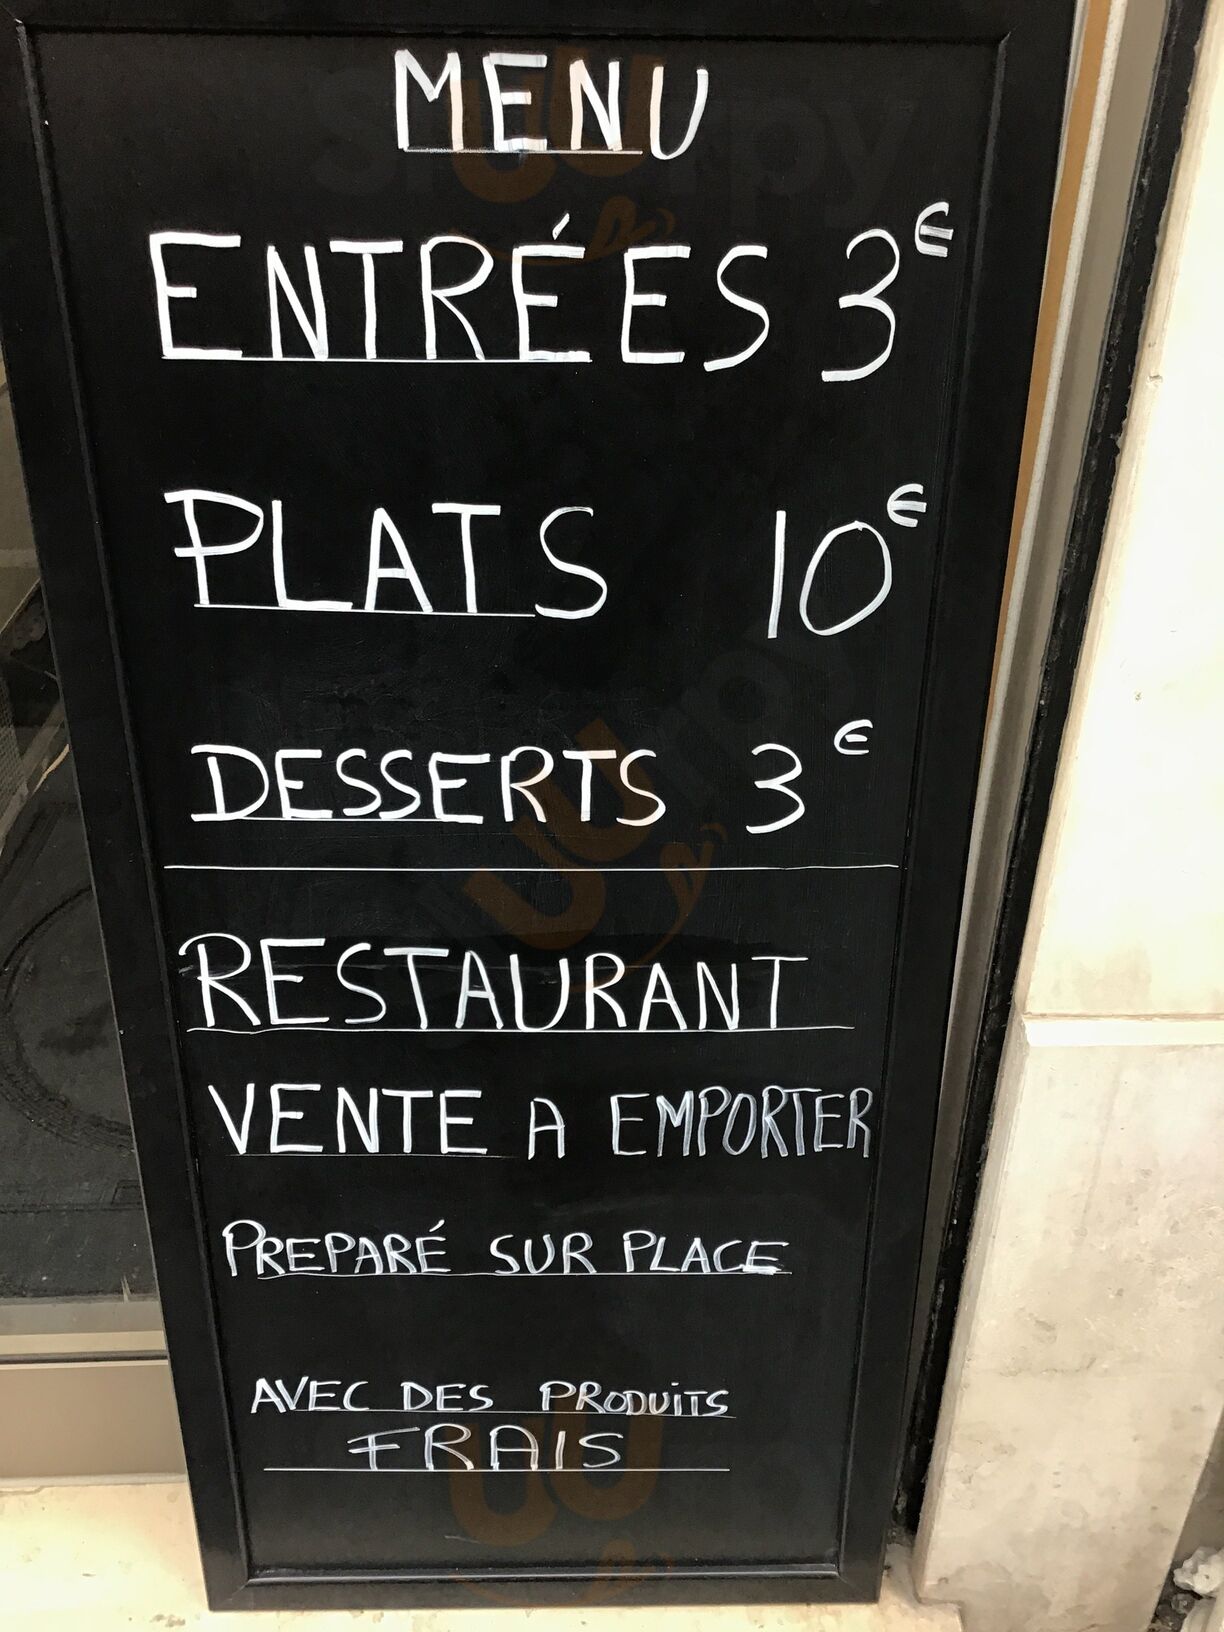 MENU
ENTRÉES 3€
PLATS 10€
DESSERTS 3€
RESTAURANT
VENTE A EMPORTER
PREPARÉ SUR PLACE
AVEC DES PRODUITS
FRAIS